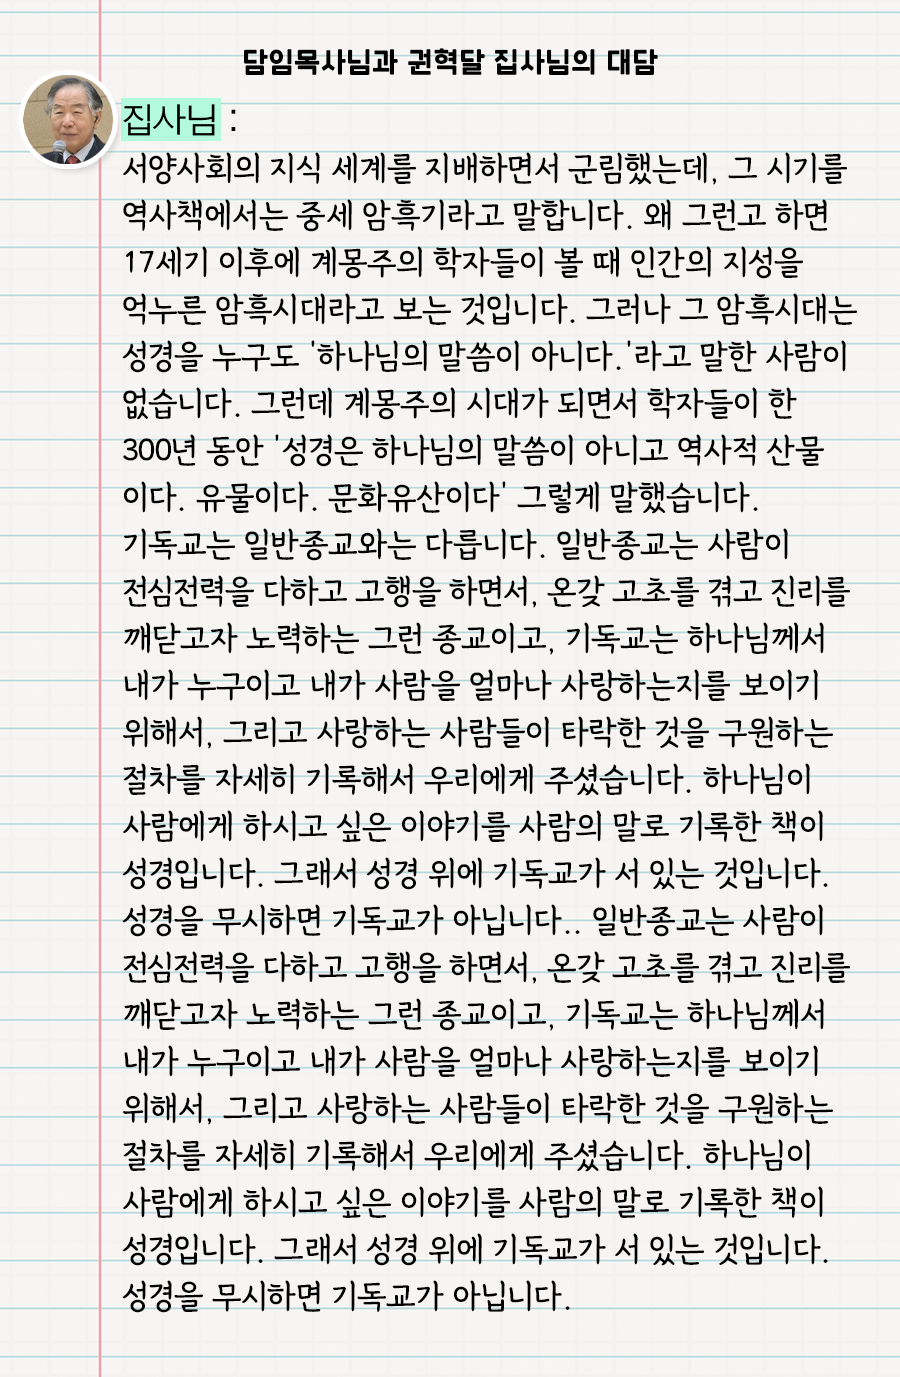 담임목사님과 권혁달 집사님의 대담
집사님 :
서양사회의 지식 세계를 지배하면서 군림했는데, 그 시기를
역사책에서는 중세 암흑기라고 말합니다. 왜 그런고 하면
17세기 이후에 계몽주의 학자들이 볼 때 인간의 지성을
억누른 암흑시대라고 보는 것입니다. 그러나 그 암흑시대는
성경을 누구도 '하나님의 말씀이 아니다.'라고 말한 사람이
없습니다. 그런데 계몽주의 시대가 되면서 학자들이 한
300년 동안 '성경은 하나님의 말씀이 아니고 역사적 산물
이다. 유물이다. 문화유산이다' 그렇게 말했습니다.
기독교는 일반종교와는 다릅니다. 일반종교는 사람이
전심전력을 다하고 고행을 하면서, 온갖 고초를 겪고 진리를
깨닫고자 노력하는 그런 종교이고, 기독교는 하나님께서
내가 누구이고 내가 사람을 얼마나 사랑하는지를 보이기
위해서, 그리고 사랑하는 사람들이 타락한 것을 구원하는
절차를 자세히 기록해서 우리에게 주셨습니다. 하나님이
사람에게 하시고 싶은 이야기를 사람의 말로 기록한 책이
성경입니다. 그래서 성경 위에 기독교가 서 있는 것입니다.
성경을 무시하면 기독교가 아닙니다.. 일반종교는 사람이
전심전력을 다하고 고행을 하면서, 온갖 고초를 겪고 진리를
깨닫고자 노력하는 그런 종교이고, 기독교는 하나님께서
내가 누구이고 내가 사람을 얼마나 사랑하는지를 보이기
위해서, 그리고 사랑하는 사람들이 타락한 것을 구원하는
절차를 자세히 기록해서 우리에게 주셨습니다. 하나님이
사람에게 하시고 싶은 이야기를 사람의 말로 기록한 책이
성경입니다. 그래서 성경 위에 기독교가 서 있는 것입니다.
성경을 무시하면 기독교가 아닙니다.